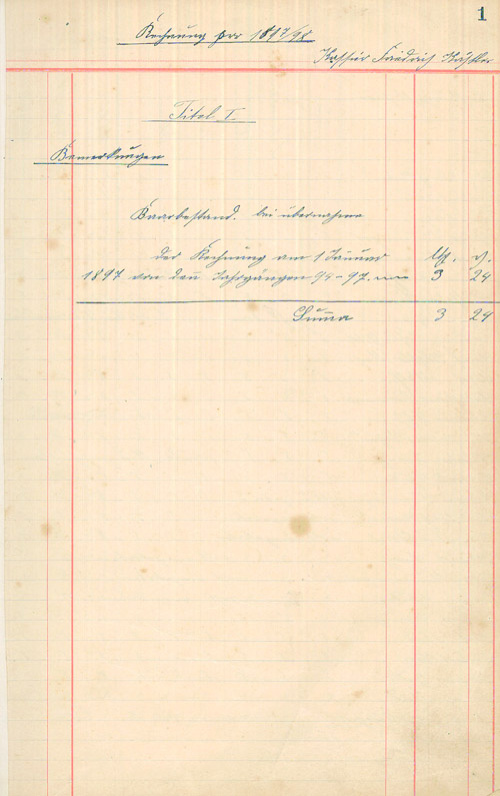 1
Rechnung pro 1897/98
Kassier Friedrich
Titel I.
Bemerkungen
Baarbestand. bei übernahme
der Rechnung am 1 Januar M. ₰.
1897 von den Jahrgängen 94-97. 3 24
Summa 3 24